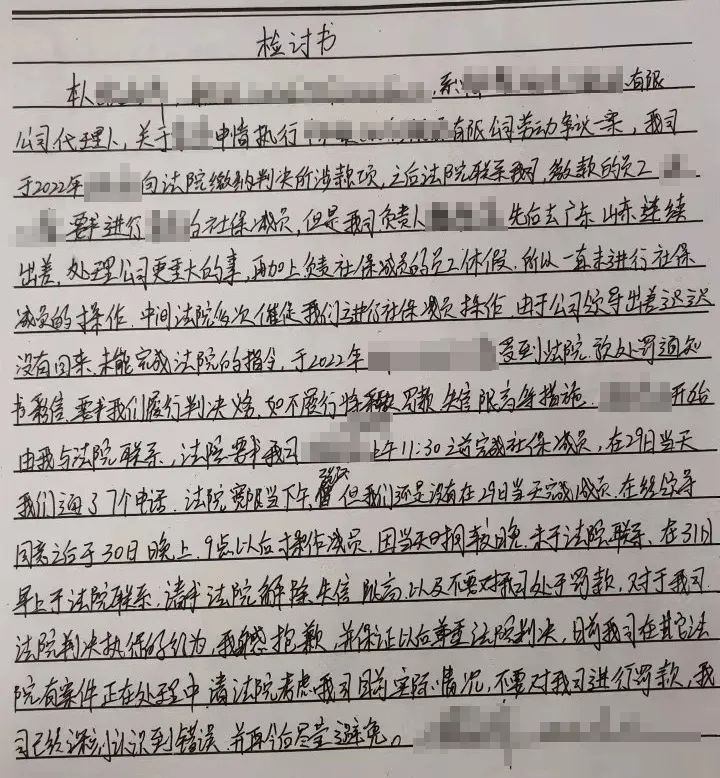 检讨书
本人 , ,系 有限
公司代理人,关于 申请执行 有限公司劳动争议一案,我司
于2022年 向法院缴纳判决所涉款项,之后法院联系我司,缴款的员工
要求进行 社保减员,但是我司负责人 先后去广东 山东连续
出差,处理公司更重大的事,再加上负责社保减员的员工休假.所以一直未进行社保
减员的操作.中间法院多次催促我们进行社保减员操作.由于公司领导出差迟迟
没有回来.未能完成法院的指令,于2022年 受到法院预处罚通知
书彩信.要求我们履行判决 ,如不履行将采取罚款 失信限高等措施. 开始
由我与法院联系,法院要求我司 上午11:30之前完成社保减员,在29日当天
我们通了7个电话.法院宽限当下午, 但我们还是没有在29日当天完成减员.在经领导
同意之后于30日晚上9点以后操作减员.因当天时间较晚.未于法院联系、在31日
早上于法院联系.请求法院解除失信 限高,以及不要对我司处于罚款,对于我司
法院判决执行的行为,我 感抱歉,并保证以后尊重法院判决,目前我司在其它法
院有案件正在处理中.请法院考虑我司目前实际情况,不要对我司进行罚款,我
司已经深刻认识到错误.并再今后尽量避免。